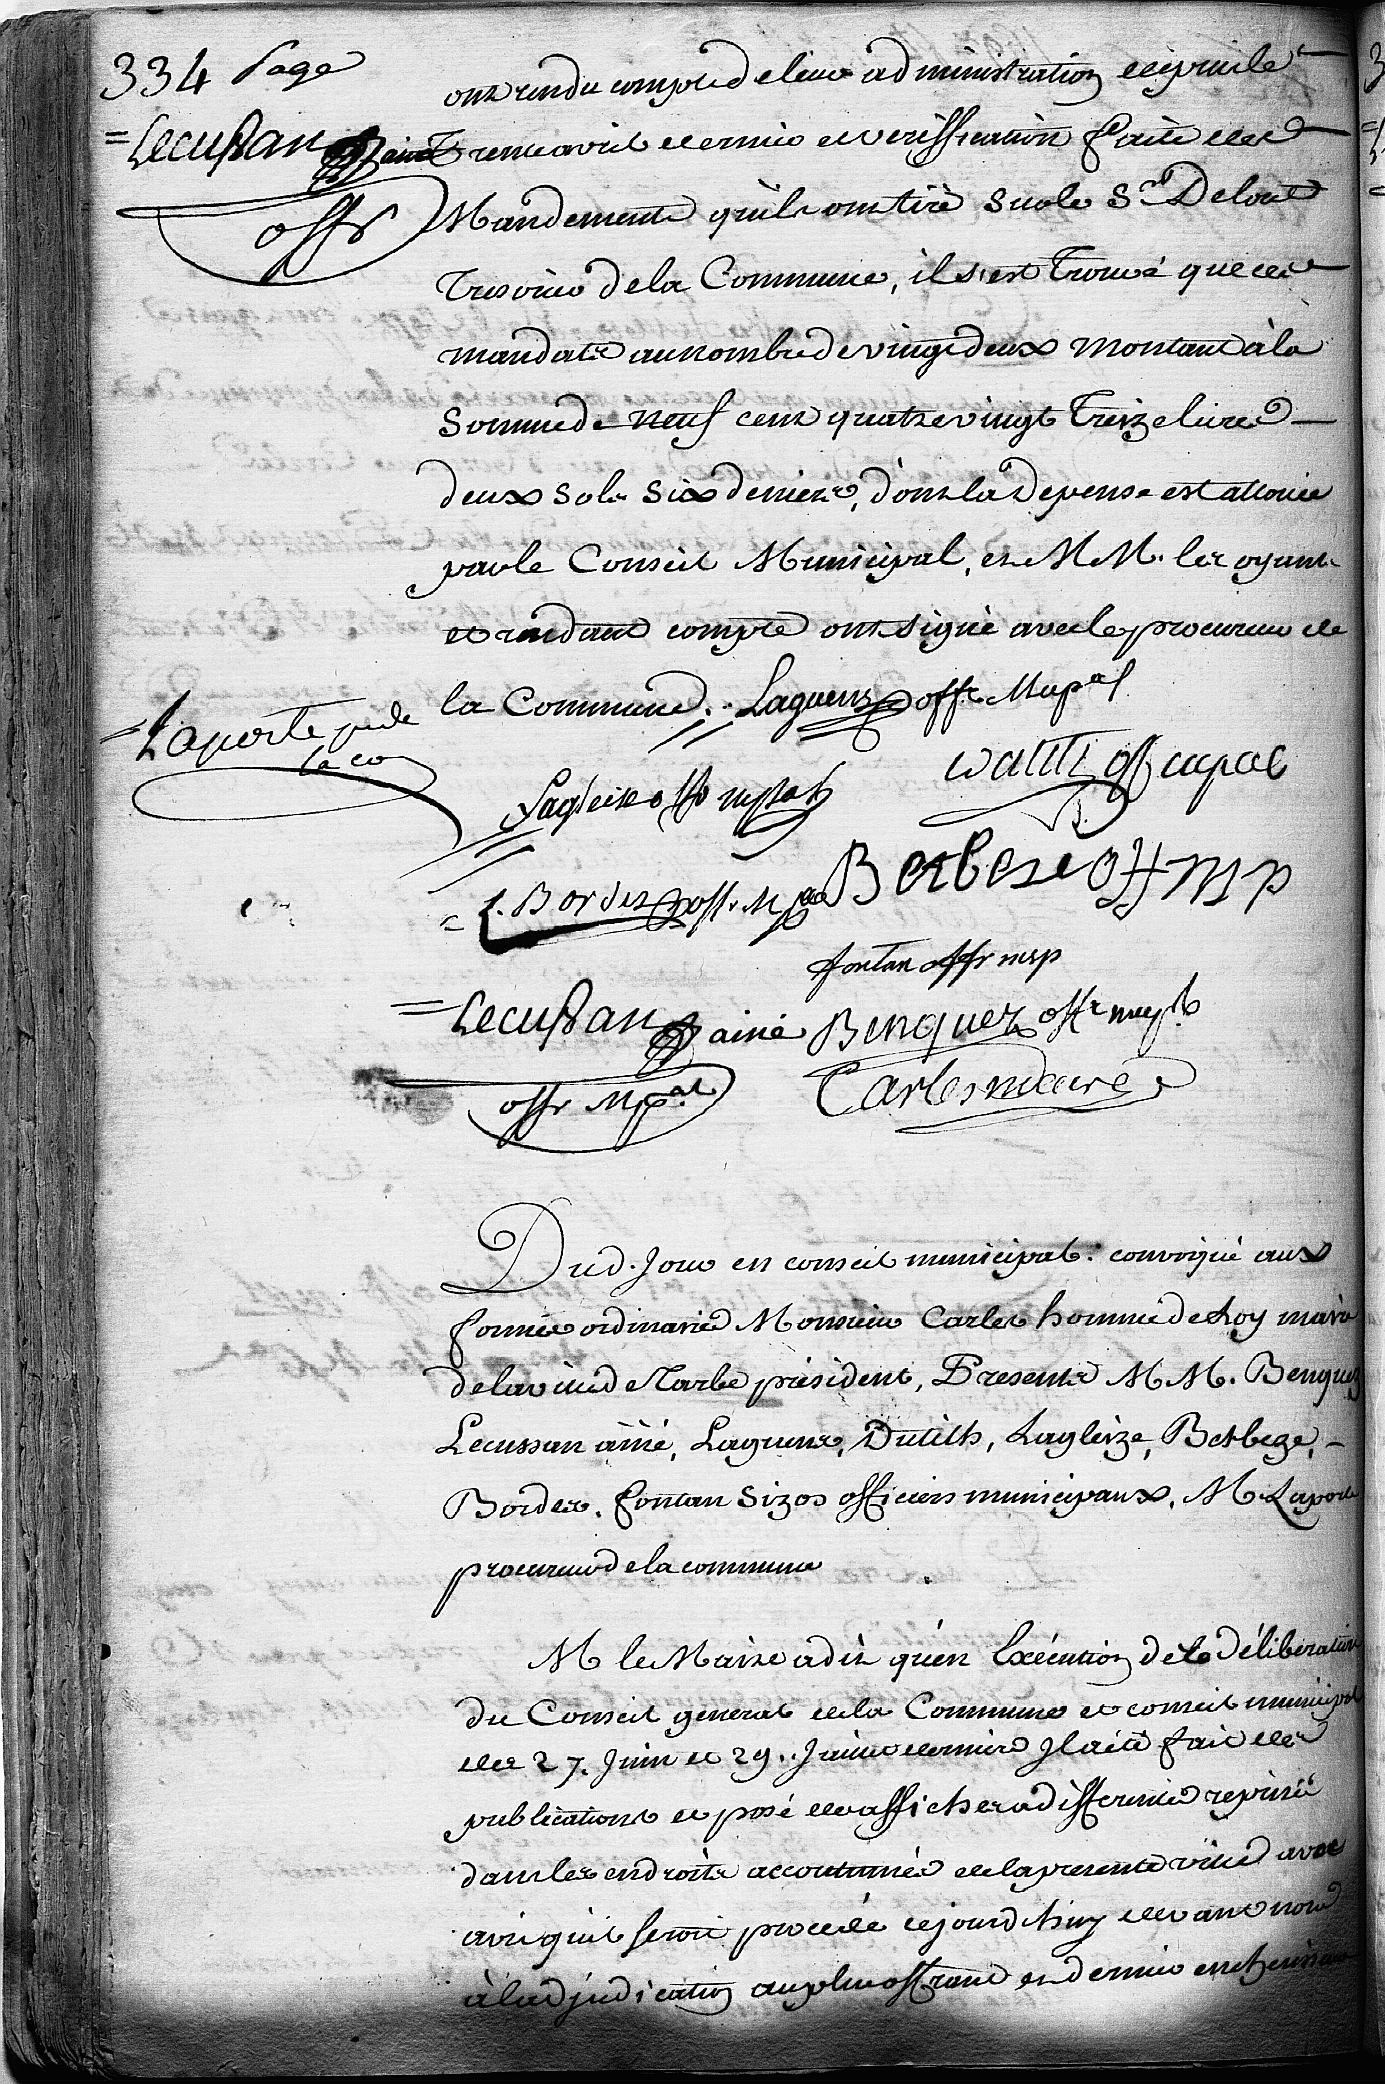 334 Page
= Lecussan ainé
offr
ont rendu compte de leur administration depuis le
Trente avril dernier et veriffication faite des
Mandements qu'ils ont tiré sur le Sr Deloue
Tresorier de la Commune, il s'est Trouvé que ces
mandats au nombre de vingt deux montant à la
somme de neuf cent quatre vingt Treize livres
deux sols six deniers, dont la depense est allouée
par le Conseil Municipal, et MM. les oyant
et rendant compte ont signé avec le procureur de
la Commune. Laguens offr Mupal
= Laporte pr de
la co
Dutilh off mpal
Lagleise offr mpal
Berbese off MP
= L. Bordes off. Mpal
fontan offr mp
= Lecussan ainé
offr Mpal
Benquez offr mupl
Carles maire
Dud. Jour en conseil municipal. convoqué aux
formes ordinaires Monsieur Carles homme de Loy maire
de la ville de Tarbe président, Presents MM. Benquez
Lecussan ainé, Laguens, Dutilh, Lagleize, Berbeze,
Bordes, fontan Sizos officiers municipaux, M. Laporte
procureur de la commune
M le Maire a dit qu'en Exécution de la délibération
du Conseil general de la Commune et conseil municipal
des 27. Juin et 29. Juin dernier Il a été fait des
publications et posé des affiches a differentes reprises
dans les endroits accoutumés de la presente ville avec
avis qu'il seroit procedé cejourd'huy devant nous
à l'adjudication au plus offrant et dernier encherisseur